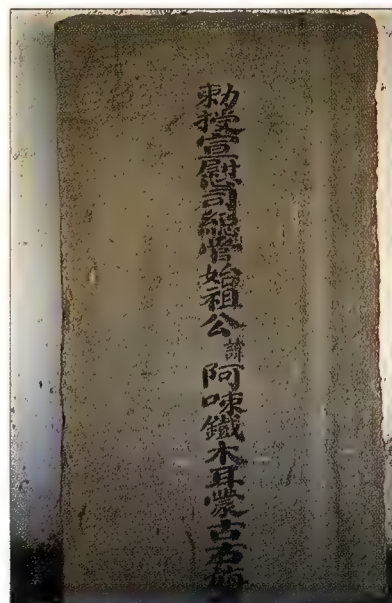 勅授宣慰司總管始祖公諱阿㖨鐵木耳蒙古右